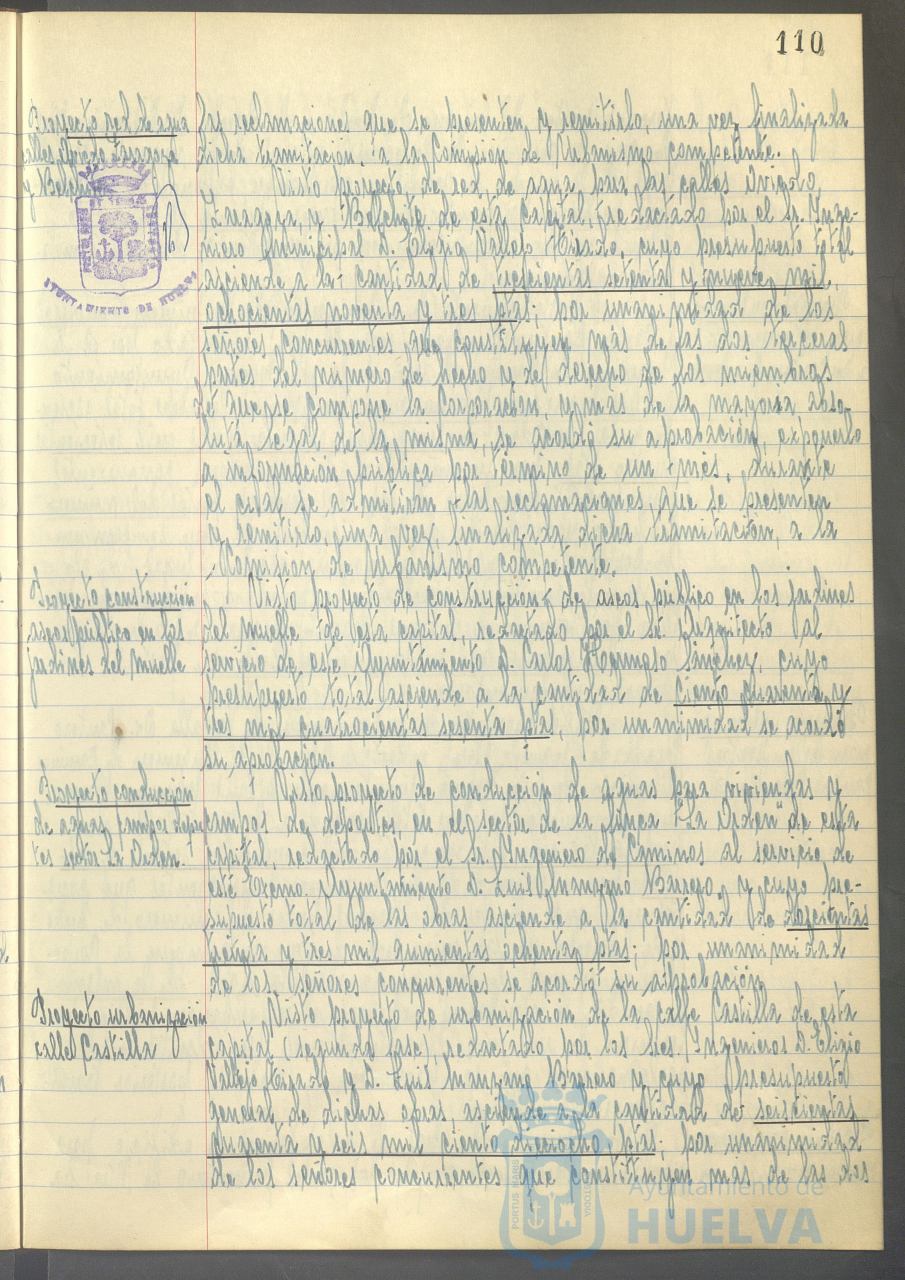 110
Proyecto red de agua
calles Oviedo Zaragoza
y Belchite
las reclamaciones que se presenten, y remitirlo, una vez finalizada
dicha tramitación, a la Comisión de Urbanismo competente.
Visto proyecto, de red, de agua, para las calles Oviedo,
Zaragoza, y Belchite de esta capital, redactado por el Sr. Inge-
niero Municipal D. Eligio Vallejo Tirado, cuyo presupuesto total
asciende a la cantidad de trescientas setenta y nueve mil,
ochocientas noventa y tres ptas; por unanimidad de los
señores concurrentes que constituyen más de las dos terceras
partes del número de hecho y de derecho de los miembros
de que se compone la Corporación, y más de la mayoría abso-
luta legal de la misma, se acordó su aprobación, exponerlo
a información pública por término de un mes, durante
el cual se admitirán las reclamaciones, que se presenten
y remitirlo, una vez, finalizada dicha tramitación, a la
Comisión de Urbanismo competente.
AYUNTAMIENTO DE HUELVA
Proyecto construcción
aseos público en los
jardines del Muelle
Visto proyecto de construcción de aseos público en los jardines
del muelle de esta capital, redactado por el Sr. Arquitecto al
servicio de este Ayuntamiento D. Carlos Hermoso Sánchez, cuyo
presupuesto total asciende a la cantidad de ciento cuarenta y
tres mil cuatrocientas sesenta ptas, por unanimidad se acordó
su aprobación.
Proyecto conducción
de aguas campos depor
tes sector La Orden.
Visto proyecto de conducción de aguas para viviendas y
campos de deportes, en el sector de la finca "La Orden" de esta
capital, redactado por el Sr. Ingeniero de Caminos al servicio de
este Excmo. Ayuntamiento D. Luis Manzano Barrero, y cuyo pre-
supuesto total de las obras asciende a la cantidad de doscientas
treinta y tres mil quinientas ochenta ptas; por unanimidad
de los señores concurrentes se acordó su aprobación
Proyecto urbanización
calle Castilla
Visto proyecto de urbanización de la calle Castilla de esta
capital (segunda fase), redactado por los Sres. Ingenieros D. Eligio
Vallejo Tirado y D. Luis Manzano Barrero y cuyo presupuesto
general de dichas obras, asciende a la cantidad de seiscientas
cuarenta y seis mil ciento dieciocho ptas; por unanimidad
de los señores concurrentes que constituyen mas de las dos
PORTUS MARIS
CUSTODIA
Ayuntamiento de
HUELVA